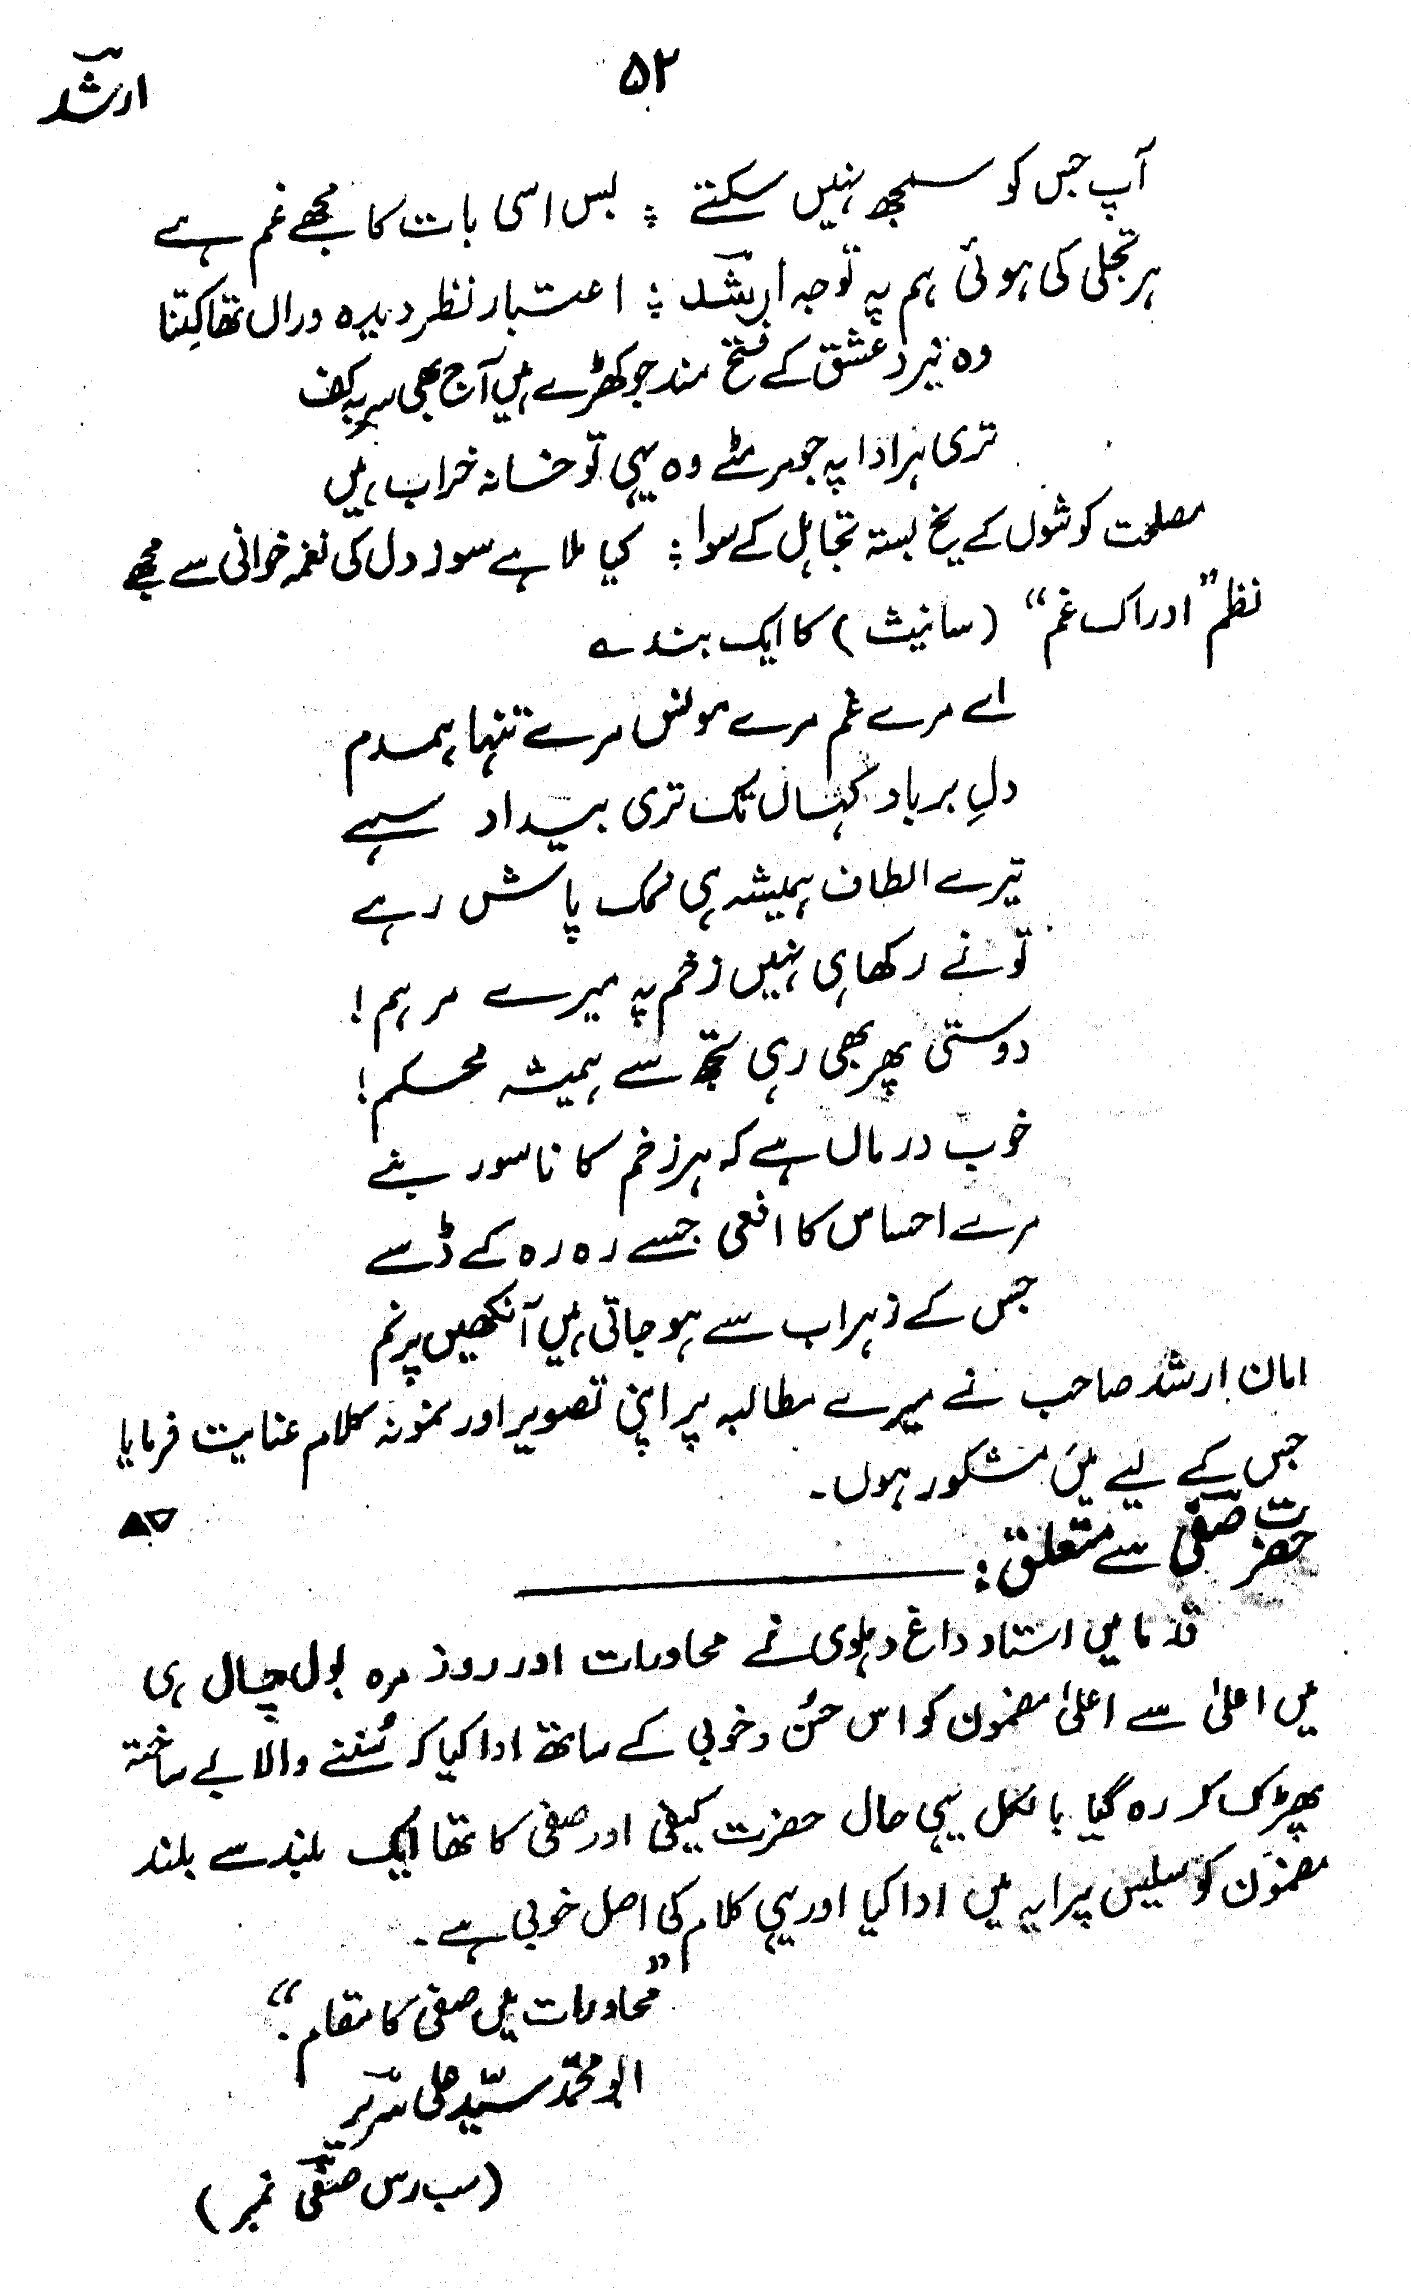 ۵۲
ارشد
آپ جس کو سمجھ نہیں سکتے ؛ بس اسی بات کا مجھے غم ہے
ہر تجلی کی ہوئی ہم پہ توجہ ارشد ؛ اعتبار نظر دیدہ وراں تھا کتنا
وہ نبرد عشق کے فتح مند جو کھڑے ہیں آج بھی سر بہ کف
تری ہر ادا پہ جو مر مٹے وہ یہی تو خانہ خراب ہیں
مصلحت کوشوں کے یخ بستہ تجاہل کے سوا ؛ کیا ملا ہے سوز دل کی نغمہ خوانی سے مجھے
نظم "ادراک غم" (سانیٹ) کا ایک بند ے
اے مرے غم مرے مونس مرے تنہا ہمدم
دلِ برباد کہاں تک تری بیداد سہے
تیرے الطاف ہمیشہ ہی نمک پاش رہے
تو نے رکھا ہی نہیں زخم پہ میرے مرہم!
دوستی پھر بھی رہی تجھ سے ہمیشہ محکم!
خوب درماں ہے کہ ہر زخم کا ناسور بنے
مرے احساس کا افعی جسے رہ رہ کے ڈسے
جس کے زہراب سے ہو جاتی ہیں آنکھیں پر نم
امان ارشد صاحب نے میرے مطالبہ پر اپنی تصویر اور نمونہ کلام عنایت فرمایا
جس کے لیے میں مشکور ہوں۔
حضرت صفی سے متعلق:
قدما میں استاد داغ دہلوی نے محاورات اور روز مرہ بول چال ہی
میں اعلیٰ سے اعلیٰ مضمون کو اس حُسن و خوبی کے ساتھ ادا کیا کہ سُننے والا بے ساختہ
پھڑک کر رہ گیا بالکل یہی حال حضرت کیفی اور صفی کا تھا ایک بلند سے بلند
مضمون کو سلیس پیرایہ میں ادا کیا اور یہی کلام کی اصل خوبی ہے۔
"محاورات میں صفی کا مقام۔"
ابو محمد سیّد علی سریر
(سب رس صفی نمبر)